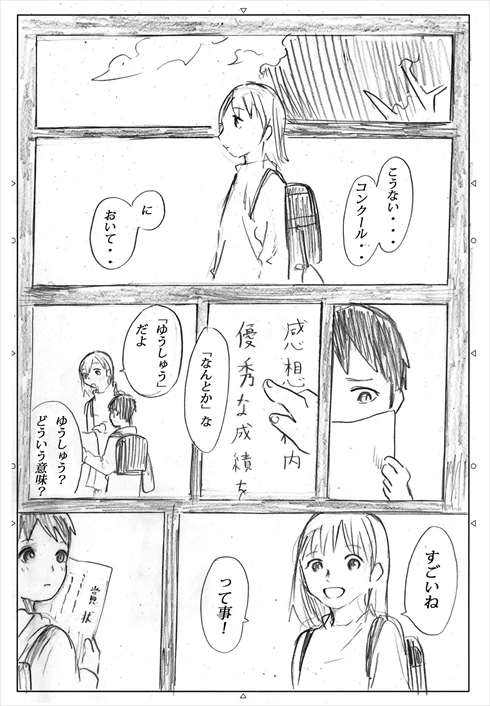 こうない・・・
コンクール・・
に
おいて・・
感想
内
優秀な成績を
「なんとか」な
「ゆうしゅう」
だよ
ゆうしゅう？
どういう意味？
すごいね
って事！
賞状